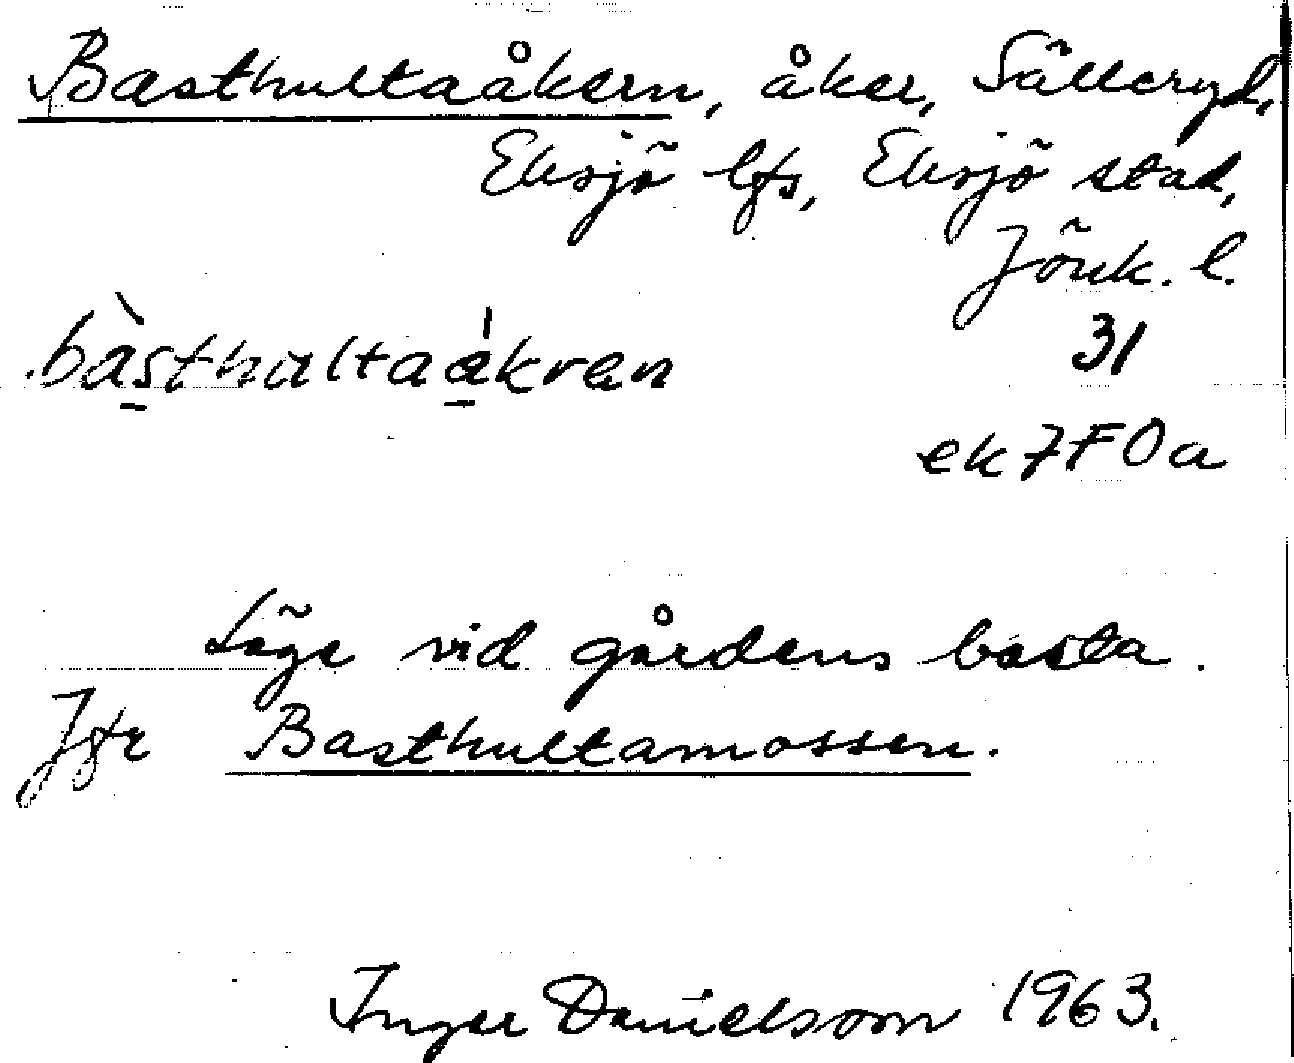 Basthultaåkern, åker, Sälleryd,
Eksjö lfs, Eksjö stad,
Jönk. l.
bàsthultaåkran 31
ek 7F0a
Läge vid gårdens basta.
Jfr Basthultamossen.
Inger Danielsson 1963.